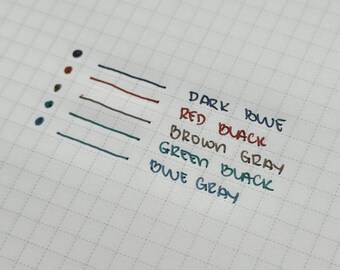 DARK BLUE
RED BLACK
BROWN GRAY
GREEN BLACK
BLUE GRAY